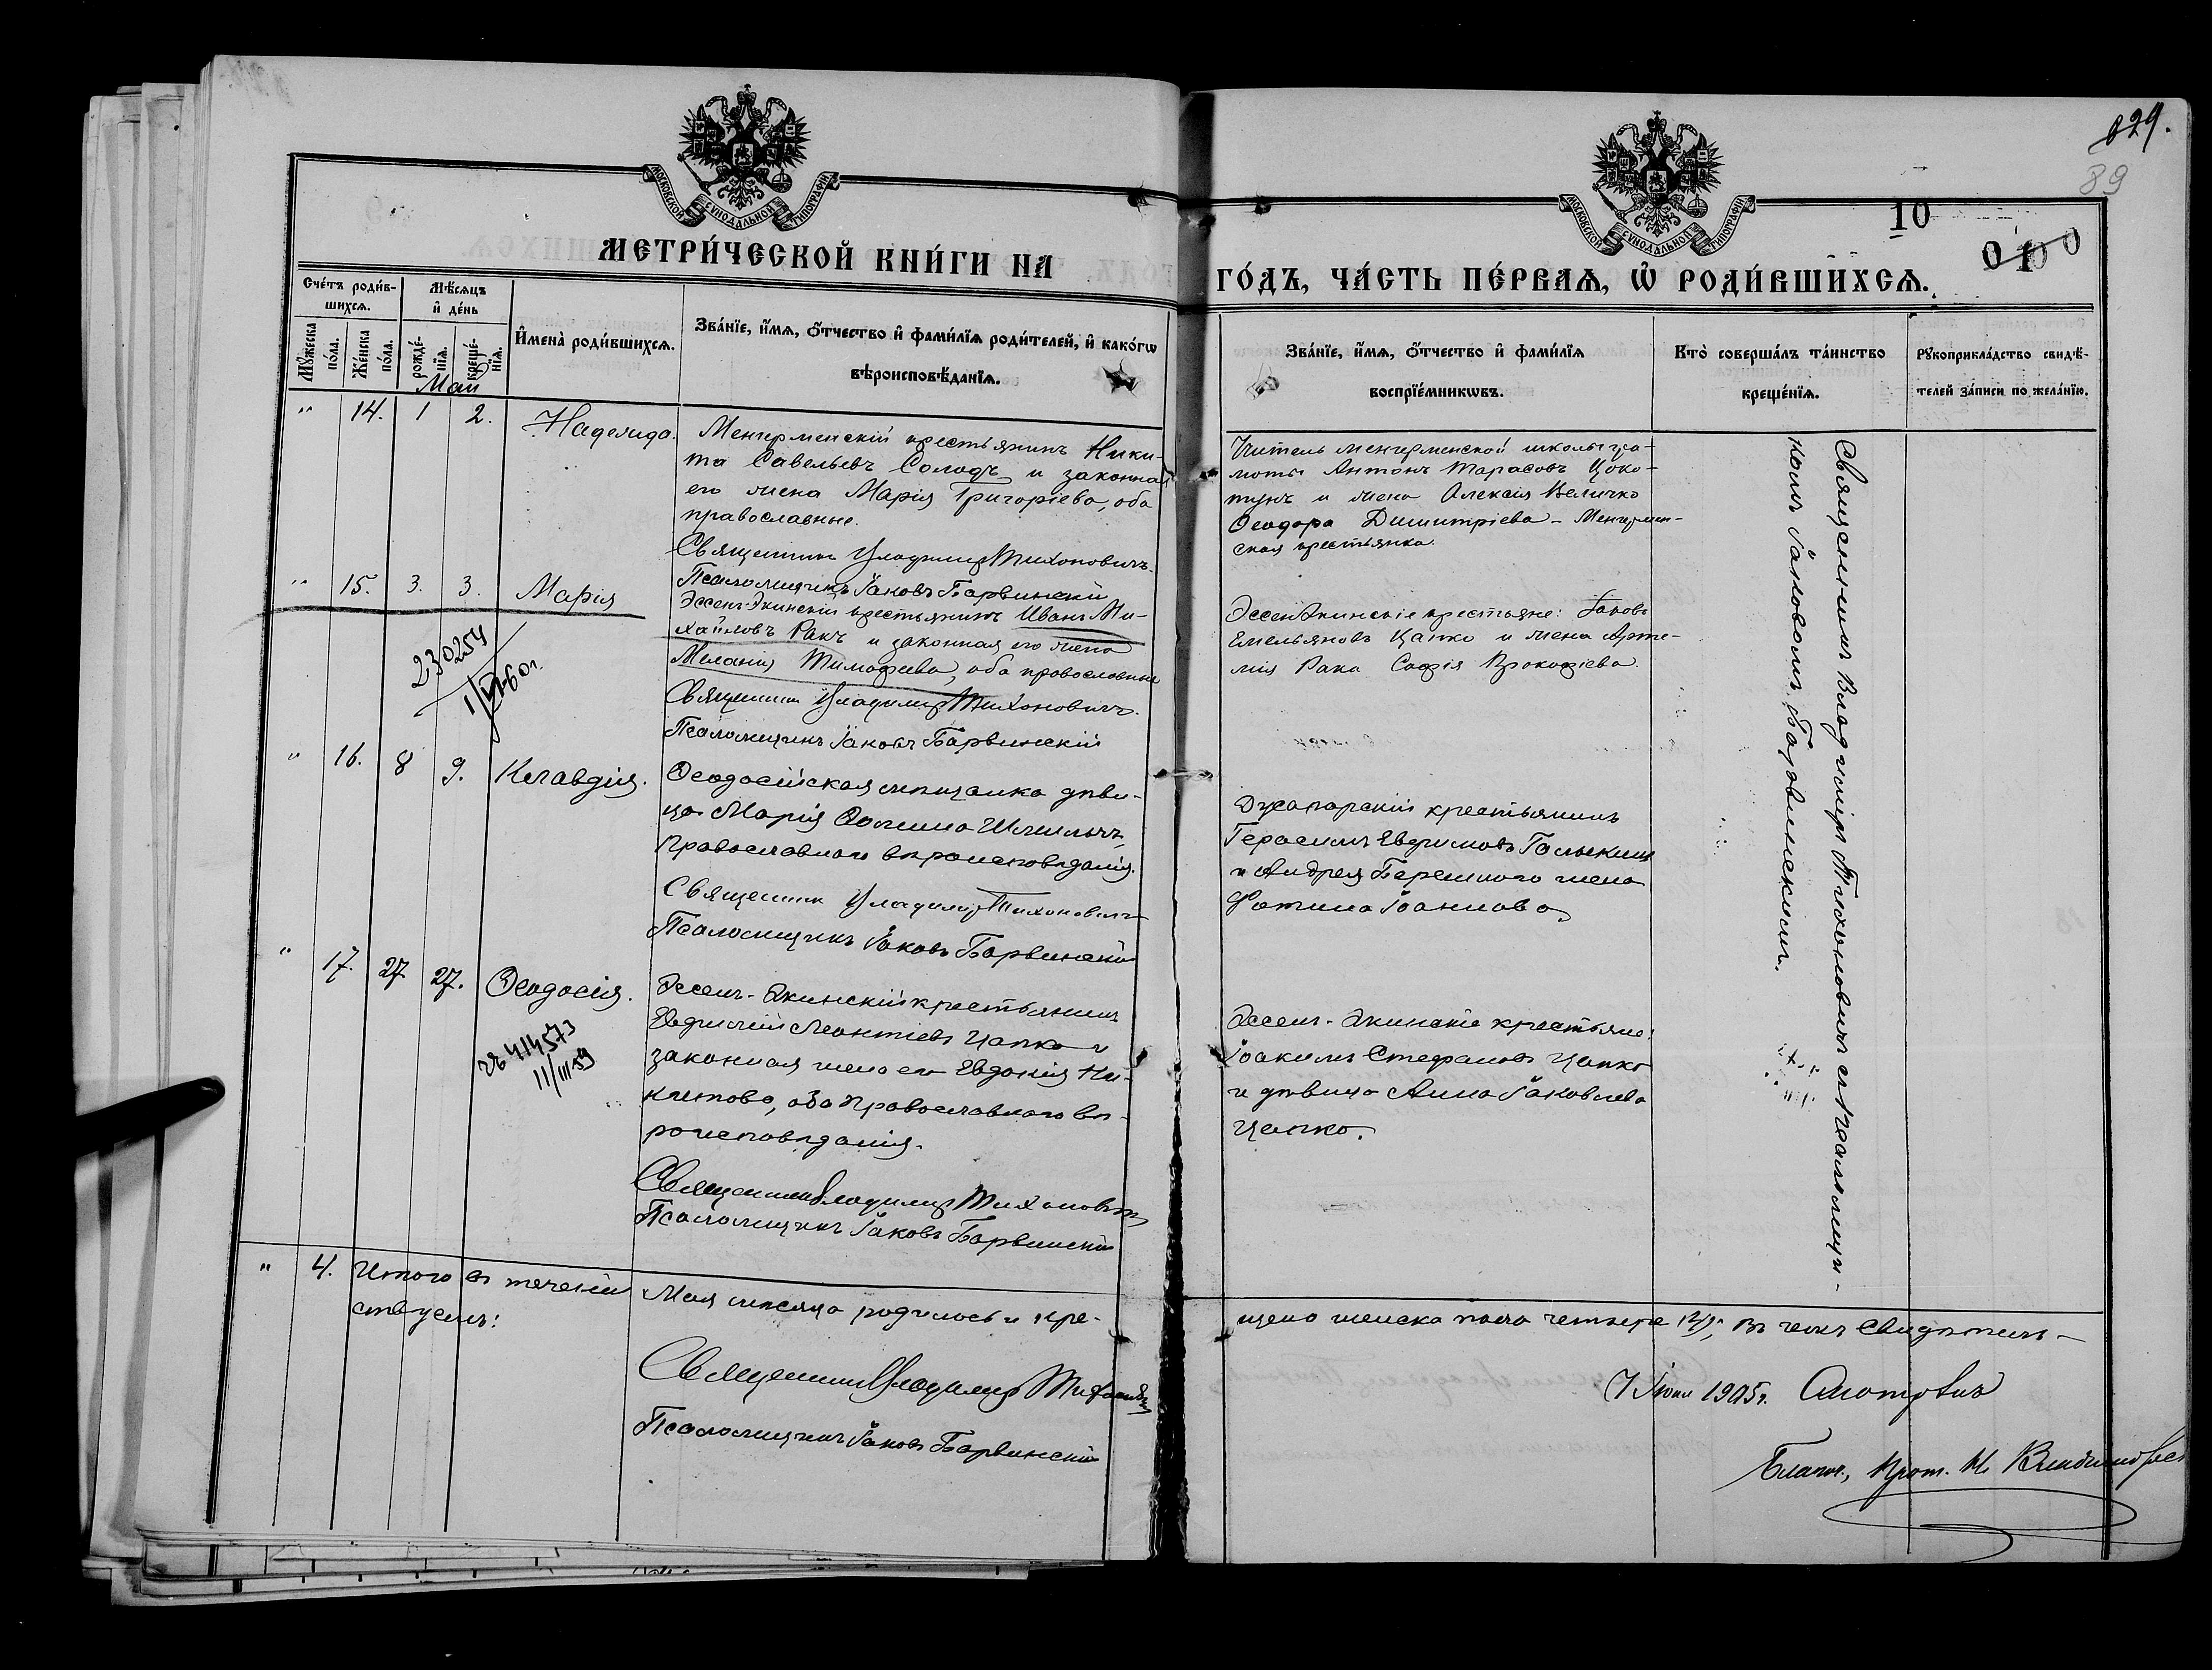 029.
89
10
0100
МОСКОВСКОЙ СѴНОДАЛЬНОЙ ТИПОГРАФІИ
МОСКОВСКОЙ СѴНОДАЛЬНОЙ ТИПОГРАФІИ
МЕТРИ́ЧЕСКОЙ КНИ́ГИ НА
ГО́ДЪ, ЧА́СТЬ ПЕ́РВАѦ, Ѡ҆ РОДИ́ВШИХСѦ.
Сче́тъ роди́в-
шихсѧ.
Мѣ́сѧцъ
и҆ де́нь
Мꙋ́жеска
по́ла.
Же́нска
по́ла.
рожде́-
нїѧ.
креще́-
нїѧ.
И҆мена̀ роди́вшихсѧ.
Зва́нїе, и҆́мѧ, ѻ҆́тчество и҆ фами́лїѧ роди́телей, и҆ како́гѡ
вѣроисповѣ́данїѧ.
Зва́нїе, и҆́мѧ, ѻ҆́тчество и҆ фами́лїѧ
воспрїе́мникѡвъ.
Кто̀ соверша́лъ та́инство
креще́нїѧ.
Рꙋкоприкла́дство свидѣ́-
телей за́писи по жела́нїю.
Май
" 14. 1 2. Надежда.
Менгерменскій крестьянинъ Ники-
та Савельевъ Солодъ и законная
его жена Марія Григоріева, оба
православные.
Священникъ Владимиръ Тихоновичъ.
Псаломщикъ Іаковъ Барвинскій
Учитель менгерменской школы гра-
моты Антонъ Тарасовъ Цоко-
тунъ и жена Алексія Величко
Ѳеодора Димитріева - Менгермен-
ская крестьянка.
" 15. 3. 3. Марія
230254
1/VI-60г.
Эссенъ-Экинскій крестьянинъ Иванъ Ми-
хайловъ Ракъ и законная его жена
Меланія Тимофеева, оба православные
Священникъ Владимиръ Тихоновичъ.
Псаломщикъ Іаковъ Барвинскій
Эссенъ Экинскіе крестьяне: Іаковъ
Емельяновъ Цапко и жена Арте-
мія Рака Софія Прокофіева.
" 16. 8 9. Клавдія.
Ѳеодосійская мѣщанка дѣви-
ца Марія Ѳомина
Православнаго вѣроисповѣданія.
Священникъ Владимиръ Тихоновичъ
Псаломщикъ Іаковъ Барвинскій
Джапарскій крестьянинъ
Герасимъ Евфимовъ
и Андрея Бережного жена
Фотина Іоаннова
" 17. 27 27. Ѳеодосія.
41573
11/III 59
Эссенъ-Экинскій крестьянинъ
Евфимій Леонтіевъ Цапко и
законная жена его Евдокія Ни-
китова, оба Православнаго вѣ-
роисповѣданія.
Священникъ Владимиръ Тихоновичъ
Псаломщикъ Іаковъ Барвинскій
Эссенъ-Экинскіе крестьяне:
Іоакимъ Стефановъ Цапко
и дѣвица Анна Іаковлева
Цапко.
Священникъ Владимиръ Тихоновичъ съ псаломщи-
комъ Іаковомъ Барвинскимъ.
" 4. Итого въ теченіи Мая мѣсяца родилось и кре-
щено женска пола четыре (4), въ чемъ свидѣтель-
ствуемъ:
Священникъ Владимиръ Тихоновичъ
Псаломщикъ Іаковъ Барвинскій
7 Іюня 1905г. Смотрѣлъ
Благоч., Прот. Н.